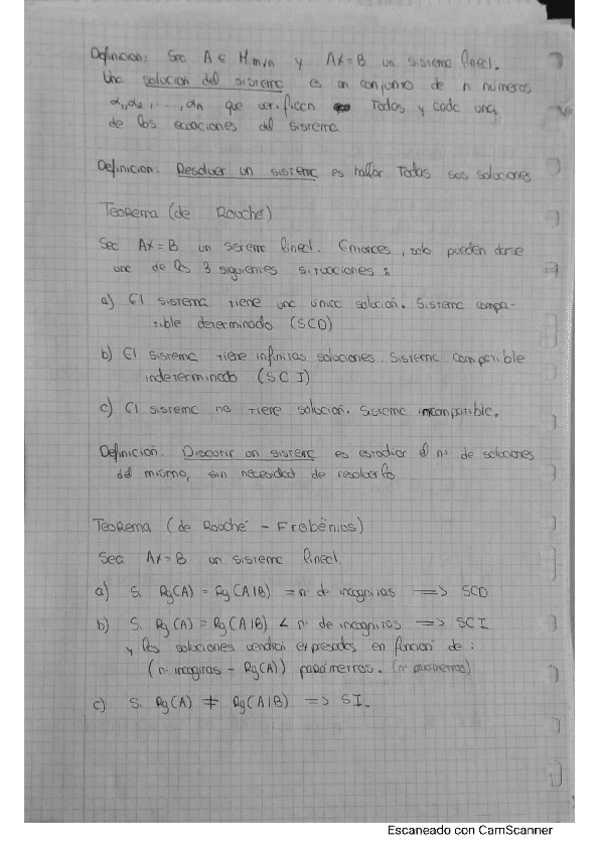 Definición: Sea A ∈ Mm,n y AX = B un sistema lineal.
Una solución del sistema es un conjunto de n números
α1, α2, ..., αn que verifican todas y cada una
de las ecuaciones del sistema
Definición: Resolver un sistema es hallar todas sus soluciones
Teorema (de Rouché)
Sea AX = B un sistema lineal. Entonces, solo pueden darse
una de las 3 siguientes situaciones:
a) El sistema tiene una única solución. Sistema compa-
tible determinado (SCD)
b) El sistema tiene infinitas soluciones. Sistema compatible
indeterminado (SCI)
c) El sistema no tiene solución. Sistema incompatible.
Definición. Discutir un sistema es estudiar el nº de soluciones
del mismo, sin necesidad de resolverlo
Teorema (de Rouché - Frobënios)
Sea AX = B un sistema lineal
a) Si Rg(A) = Rg(A|B) = nº de incógnitas ==> SCD
b) Si Rg(A) = Rg(A|B) < nº de incógnitas ==> SCI
y las soluciones vendrán expresadas en función de:
(nº incógnitas - Rg(A)) parámetros. (nº parámetros)
c) Si Rg(A) ≠ Rg(A|B) ==> SI.
Escaneado con CamScanner